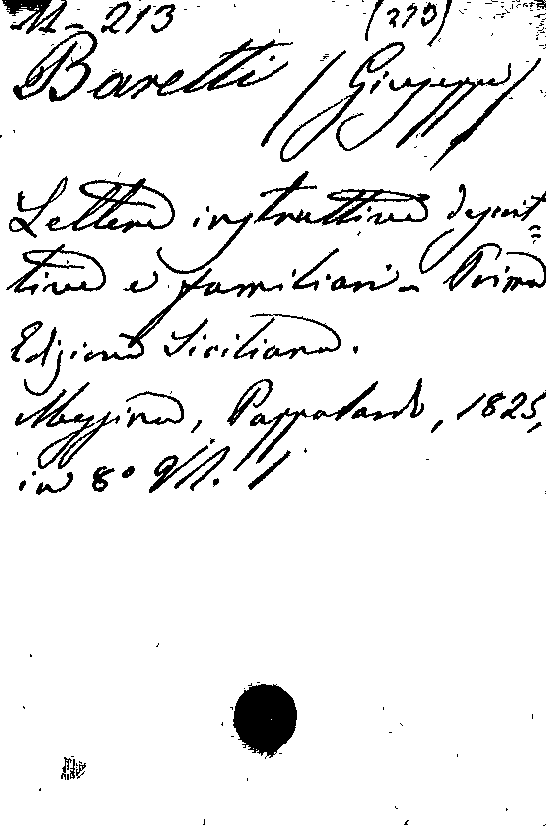 M-213 (273)
Baretti (Giuseppe)
Lettere instruttive descrit=
tive e familiari - Prima
Edizione Siciliana.
Messina, Pappalardo, 1825,
in 8° Vol. 1